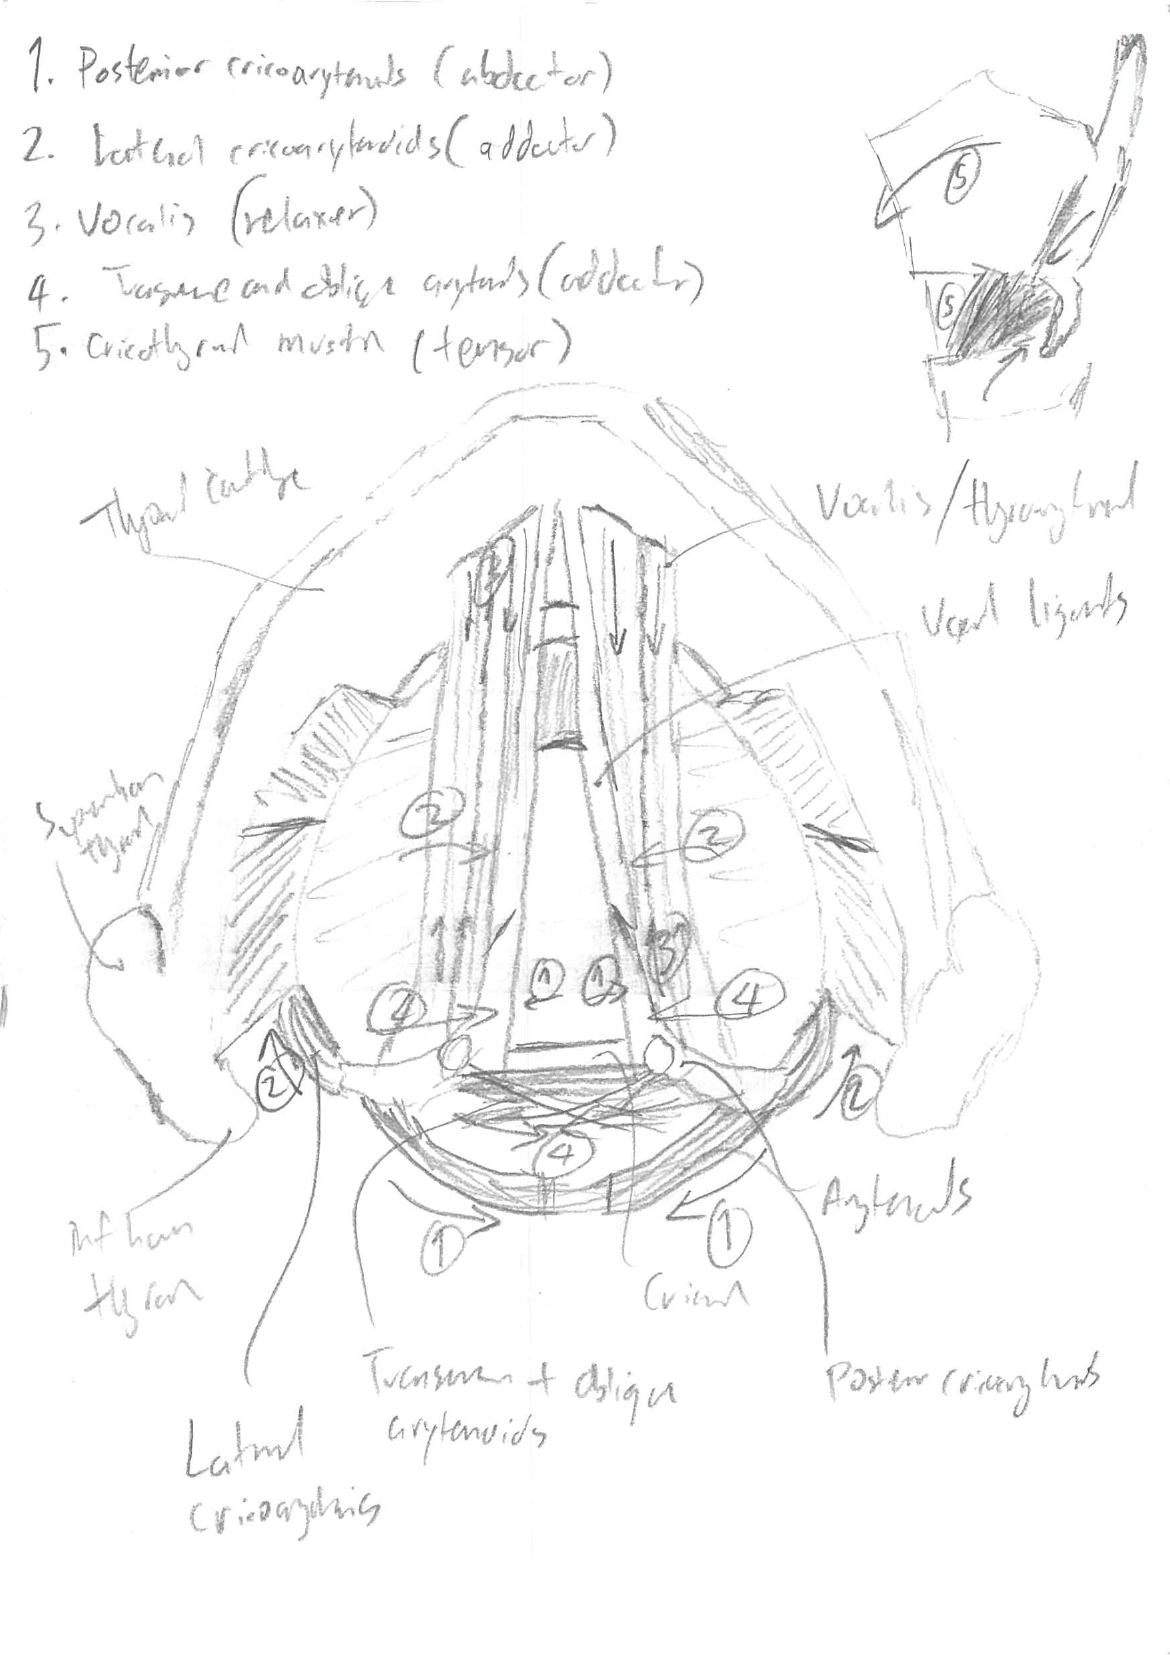 1. Posterior cricoarytenoids (abductor)
2. Lateral cricoarytenoids (adductor)
3. Vocalis (relaxer)
4. Transverse and oblique arytenoids (adductor)
5. Cricothyroid muscle (tensor)
5
5
Thyroid cartilage
Vocalis/thyroarytenoid
Vocal ligaments
3
Superior horn
thyroid
2
2
3
1
1
4
4
2
2
4
1
1
Arytenoids
Inf horn
thyroid
Cricoid
Transverse + oblique
arytenoids
Posterior cricoarytenoids
Lateral